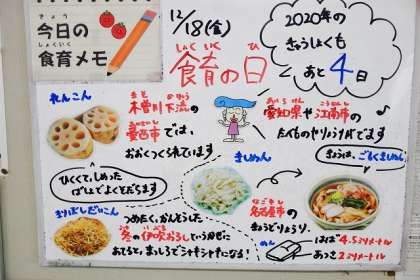 きょう
今日の
しょくいく
食育メモ
12/18(金)
しょく いく ひ
食育の日
2020年の
きゅうしょくも
あと4日
れんこん
木曽川下流の
愛西市では、
おおくつくられています
ひくくて、しめった
ばしょでよくそだちます
あいちけん
愛知県や江南市の
たべものやりょうりがでます
きしめん
きょうは、ごもくきしめん
なごやし
名古屋市の
きょうどりょうり。
めん
はば 4.5ミリメートル
あつさ 2ミリメートル
きりぼしだいこん
つめたく、かんそうした
ふゆ いぶき
冬の伊吹おろしというかぜに
あてると、まっしろでシャキシャキになる!